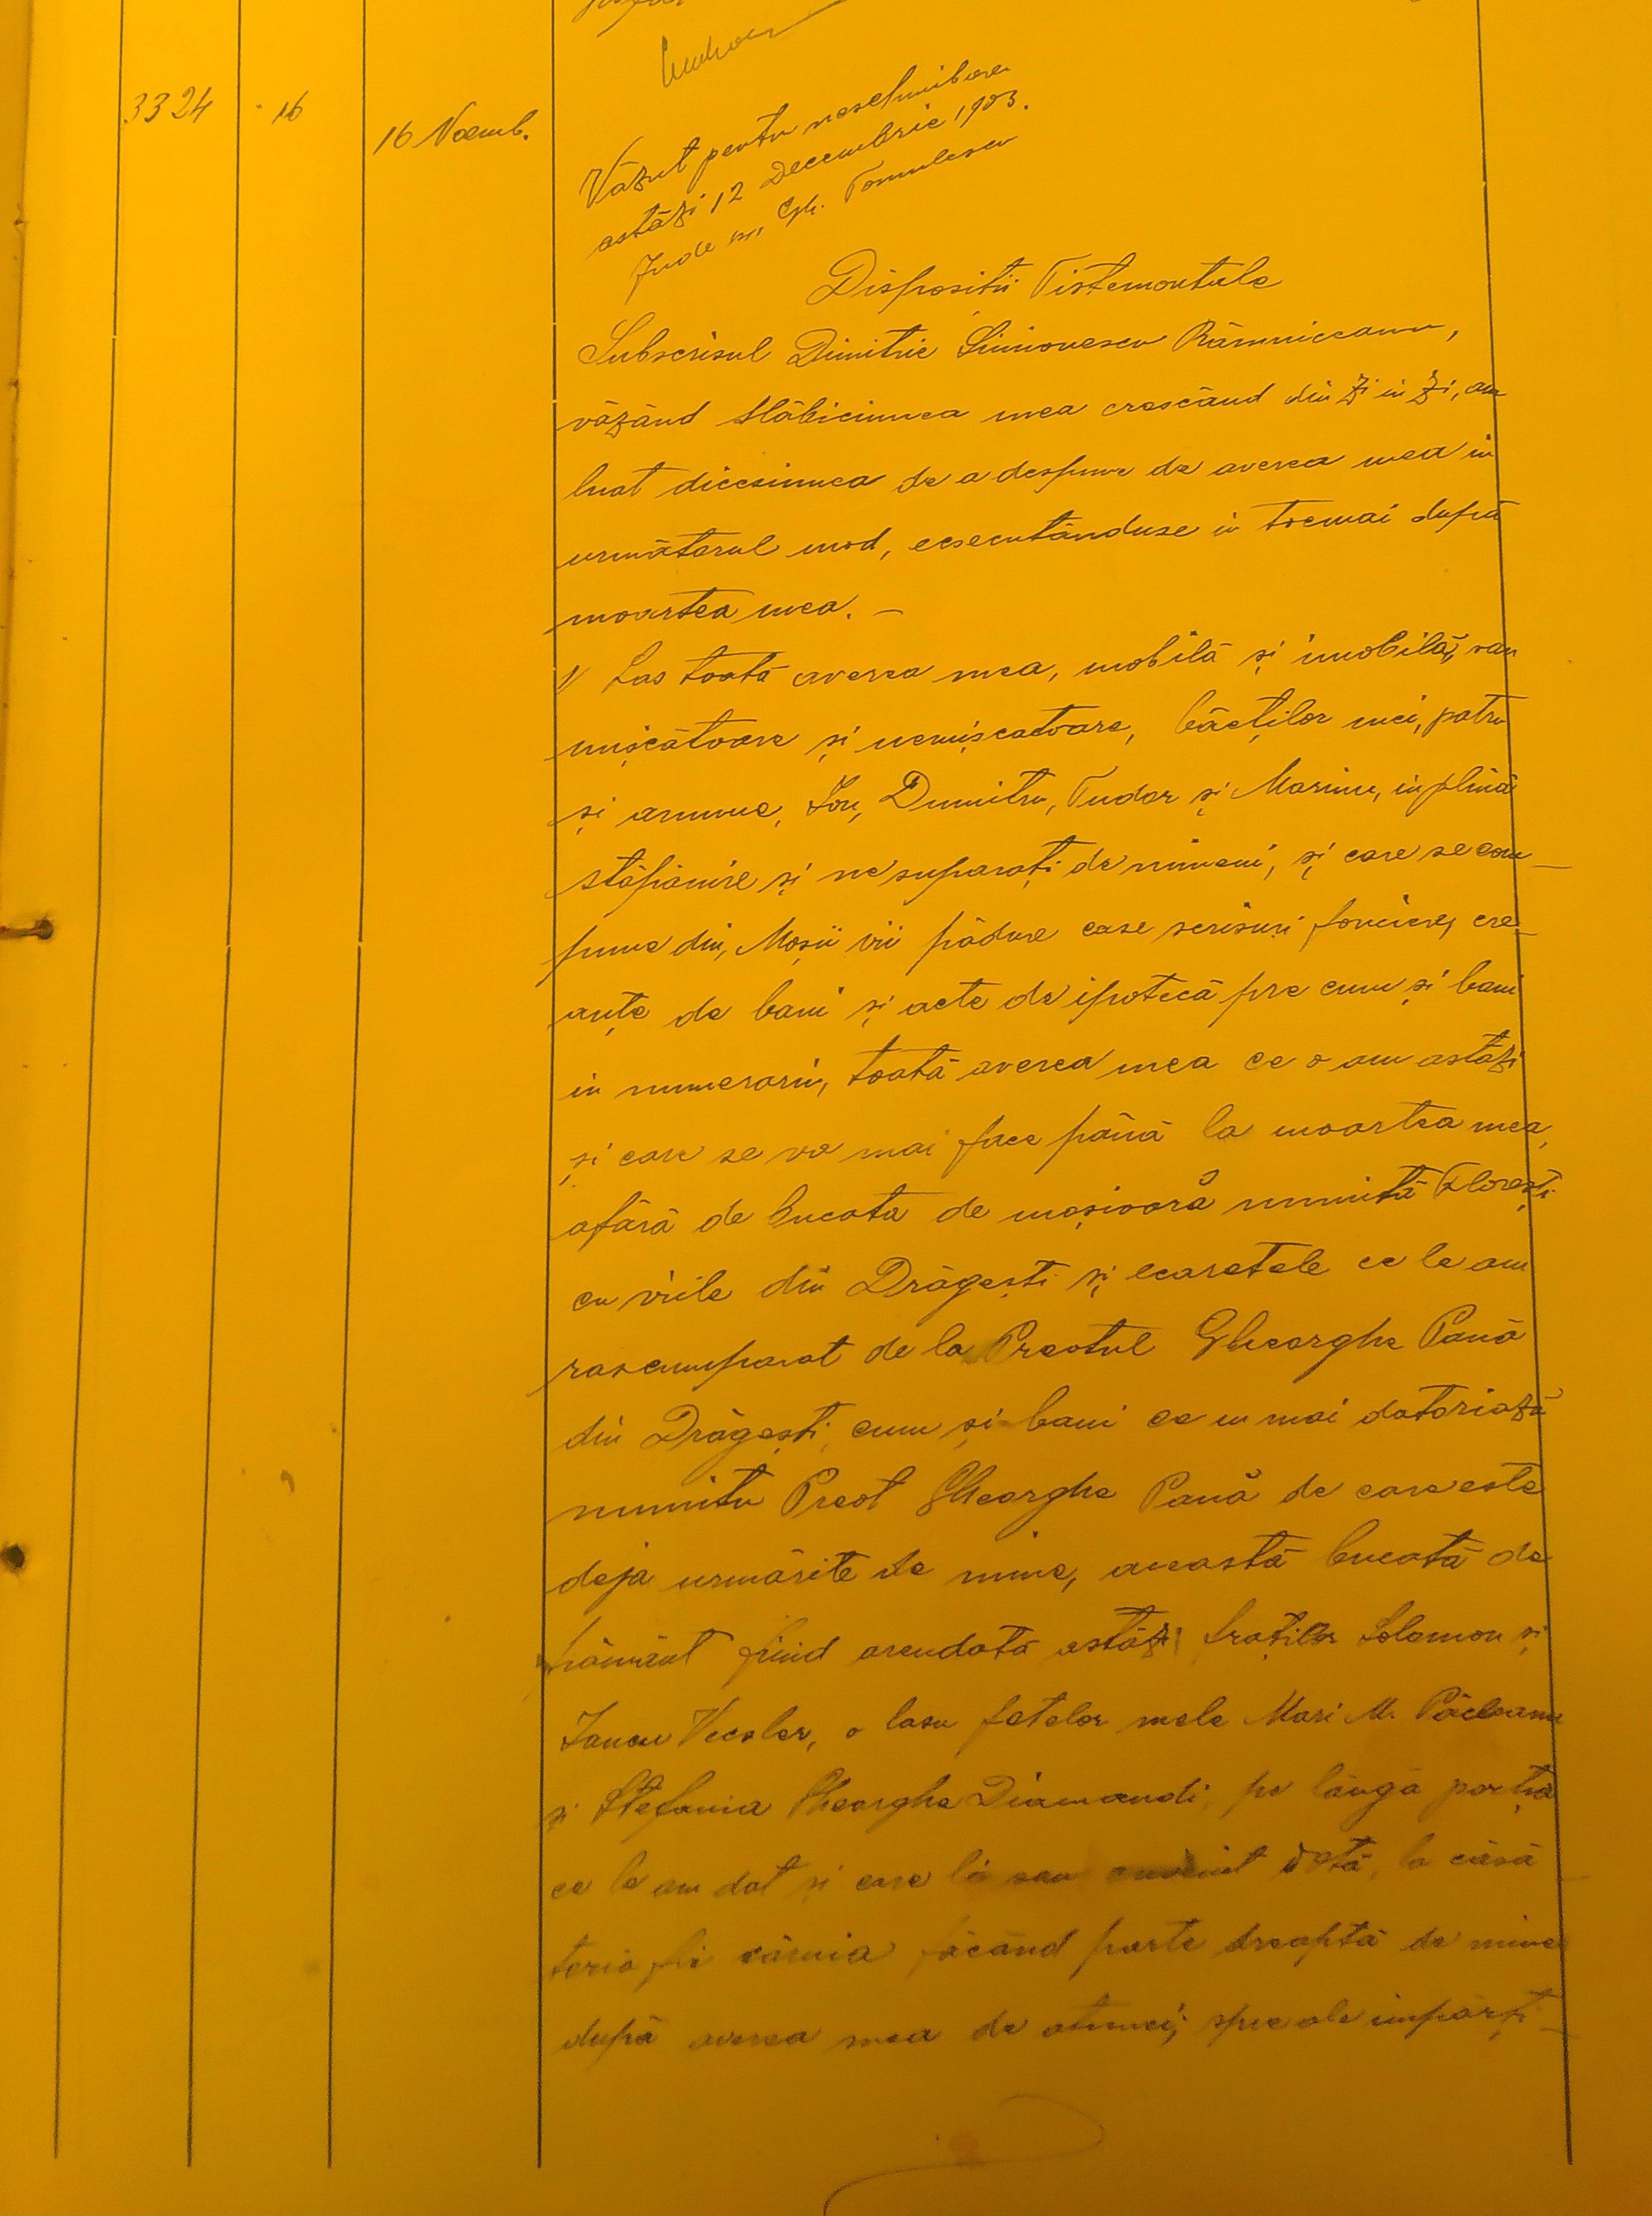 3324 16 16 Noemb.
Văzut pentru neschimbare
astăzi 12 Decembrie 1903.
Jude ss, Gh. Tomulescu
Dispositii Tistamentale
Subscrisul Dimitrie Simionescu Râmniceanu,
văzând slăbiciunea mea crescând din zi in zi, am
luat diccsiunea de a despune de averea mea in
următorul mod, ecsecutânduse in tocmai după
moartea mea. —
1/ Las toată averea mea, mobilă și imobilă, sau
mișcătoare și nemișcatoare, băeților mei, patru
și anume, Ion, Dumitru, Tudor și Marin, in plină
stăpânire și ne suparați de nimeni, și care se com
pune din, Moșii vii pădure case scrisuri fonciere, cre
anțe de bani și acte de ipotecă pre cum și bani
in numerariu, toată averea mea ce o am astăzi
și care se va mai face până la moartea mea,
afără de bucata de moșioară numită Florești
cu viile din Drăgești și ecaretele ce le am
rascumparat de la Preotul Gheorghe Pană
din Drăgești, cum și bani ce m mai datoriază
numitu Preot Gheorghe Pană de care este
deja urmărite de mine, această bucată de
pământ fiind arendată astăzi fraților Solomon și
Iancu Vecsler, o lasu fetelor mele Mari M. Pâcleanu
și Stefania Gheorghe Diamandi, pe lângă porția
ce le am dat și care li sau cuvenit dotă, la căsă
toria fie căruia făcând parte dreaptă de mine
după averea mea de atunci, spre ale impărți